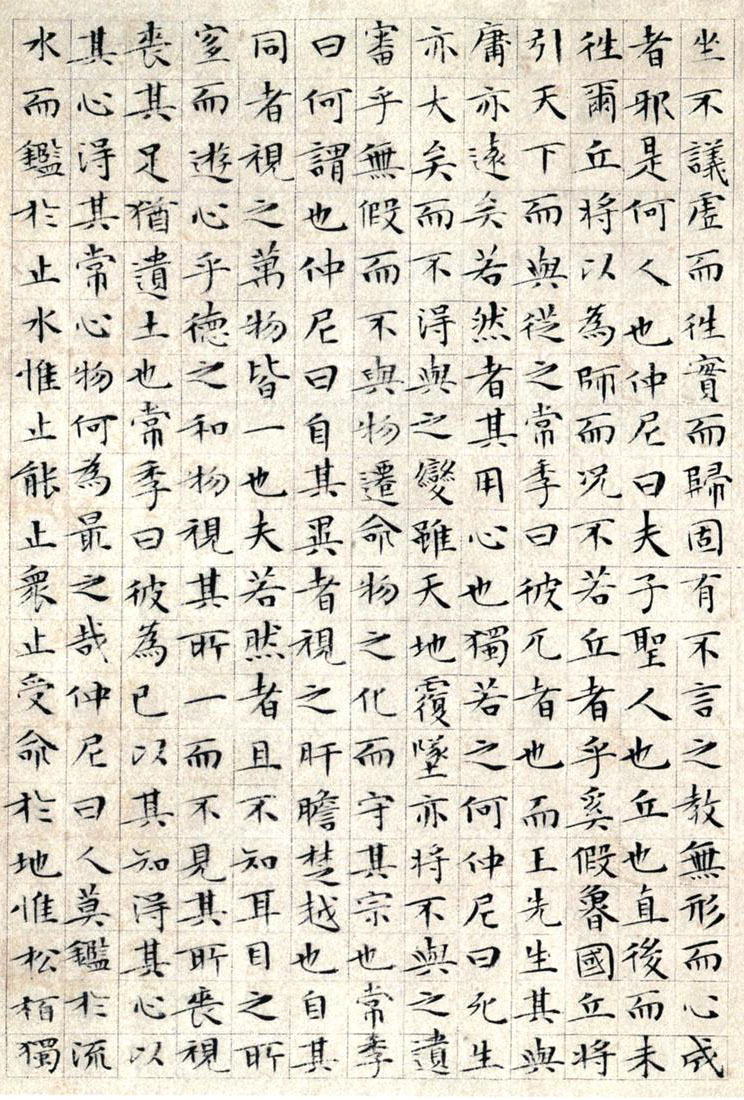 坐不議虛而往實而歸固有不言之教無形而心成
者邪是何人也仲尼曰夫子聖人也丘也直後而未
往爾丘將以為師而况不若丘者乎奚假魯國丘將
引天下而與從之常季曰彼兀者也而王先生其與
庸亦遠矣若然者其用心也獨若之何仲尼曰死生
亦大矣而不得與之變雖天地覆墜亦將不與之遺
審乎無假而不與物遷命物之化而守其宗也常季
曰何謂也仲尼曰自其異者視之肝膽楚越也自其
同者視之萬物皆一也夫若然者且不知耳目之所
宜而遊心乎德之和物視其所一而不見其所喪視
喪其足猶遺土也常季曰彼為己以其知得其心以
其心得其常心物何為最之哉仲尼曰人莫鑑於流
水而鑑於止水惟止能止眾止受命於地惟松栢獨